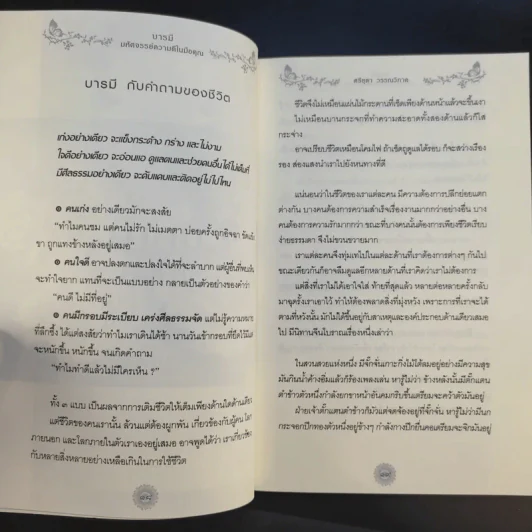 บารมี
มหัศจรรย์ความดีในมือคุณ
บารมี กับคำถามของชีวิต
เก่งอย่างเดียว จะแข็งกระด้าง กร่าง และไม่งาม
ใจดีอย่างเดียว จะอ่อนแอ ดูแลตนและช่วยคนอื่นได้ไม่เต็มที่
มีศีลธรรมอย่างเดียว จะคับแคบและติดอยู่ไม่ไปไหน
๏ คนเก่ง อย่างเดียวมักจะสงสัย
“ทำไมคนชม แต่คนไม่รัก ไม่เมตตา บ่อยครั้งถูกอิจฉา ขัดแข้ง
ขา ถูกแทงข้างหลังอยู่เสมอ”
๏ คนใจดี อาจปลงตกและปลงใจได้ที่จะลำบาก แต่ผู้อื่นที่พบเห็น
จะทำใจยาก แทนที่จะเป็นแบบอย่าง กลายเป็นตัวอย่างของคำว่า
“คนดี ไม่มีที่อยู่”
๏ คนมีกรอบมีระเบียบ เคร่งศีลธรรมจัด แต่ไม่รู้ความหมาย
ที่ลึกซึ้ง ได้แต่สงสัยว่าทำไมเราเดินได้ช้า นานวันเข้ากรอบที่ยึดไว้มีแต่
จะหนักขึ้น หนักขึ้น จนเกิดคำถาม
“ทำไมทำดีแล้วไม่มีใครเห็น ?”
ทั้ง ๓ แบบ เป็นผลจากการเติมชีวิตให้เต็มเพียงด้านใดด้านเดียว
แต่ชีวิตของคนเรานั้น ล้วนแต่ต้องผูกพัน เกี่ยวข้องกับผู้คน โลก
ภายนอก และโลกภายในตัวเราเองอยู่เสมอ อาจพูดได้ว่า เราเกี่ยวข้อง
กับหลายสิ่งหลายอย่างเหลือเกินในการใช้ชีวิต
ศรัญดา วรรณวิกาล
ชีวิตจึงไม่เหมือนแผ่นไม้กระดานที่เช็ดเพียงด้านหน้าแล้วจะขึ้นเงา
ไม่เหมือนบานกระจกที่ทำความสะอาดทั้งสองด้านแล้วก็ใส
กระจ่าง
อาจเปรียบชีวิตเหมือนโคมไฟ ถ้าเช็ดถูดูแลได้รอบ ก็จะสว่างเรือง
รอง ส่องแสงนำเราไปยังหนทางที่ดี
แน่นอนว่าในชีวิตของเราแต่ละคน มีความต้องการปลีกย่อยแตก
ต่างกัน บางคนต้องการความสำเร็จเรื่องงานมากกว่าอย่างอื่น บาง
คนต้องการความรักมากกว่า ขณะที่บางคนนั้นต้องการเพียงชีวิตเรียบ
ง่ายธรรมดา จึงไม่ขวนขวายมาก
เราแต่ละคนจึงทุ่มเทไปในแต่ละด้านที่เราต้องการต่างๆ กันไป
ขณะเดียวกันก็อาจลืมดูแลอีกหลายด้านที่เราคิดว่าเราไม่ต้องการ
แต่สิ่งที่เราไม่ได้เอาใจใส่ ท้ายที่สุดแล้ว หลายต่อหลายครั้งกลับ
มาฉุดรั้งเราเอาไว้ ทำให้ต้องพลาดสิ่งที่มุ่งหวัง เพราะการที่เราจะได้
ตามที่หวังนั้น มักไม่ได้ขึ้นอยู่กับสาเหตุและองค์ประกอบด้านเดียวเสมอ
ไป มีนิทานจีนโบราณเรื่องหนึ่งเล่าว่า
ในสวนสวยแห่งหนึ่ง มีจั๊กจั่นเกาะกิ่งไม้ใต้ลมอยู่อย่างมีความสุข
มันกินน้ำค้างอิ่มแล้วก็ร้องเพลงเล่น หารู้ไม่ว่า ข้างหลังนั้นมีตั๊กแตน
ตำข้าวตัวหนึ่งกำลังยกขาหน้าอันคมกริบขึ้นเตรียมจะคว้าตัวมันอยู่
ฝ่ายเจ้าตั๊กแตนตำข้าวก็มัวแต่จดจ้องอยู่ที่จั๊กจั่น หารู้ไม่ว่ามีนก
กระจอกปีกทองตัวหนึ่งอยู่ข้างๆ กำลังกางปีกยื่นคอเตรียมจะจิกมันอยู่